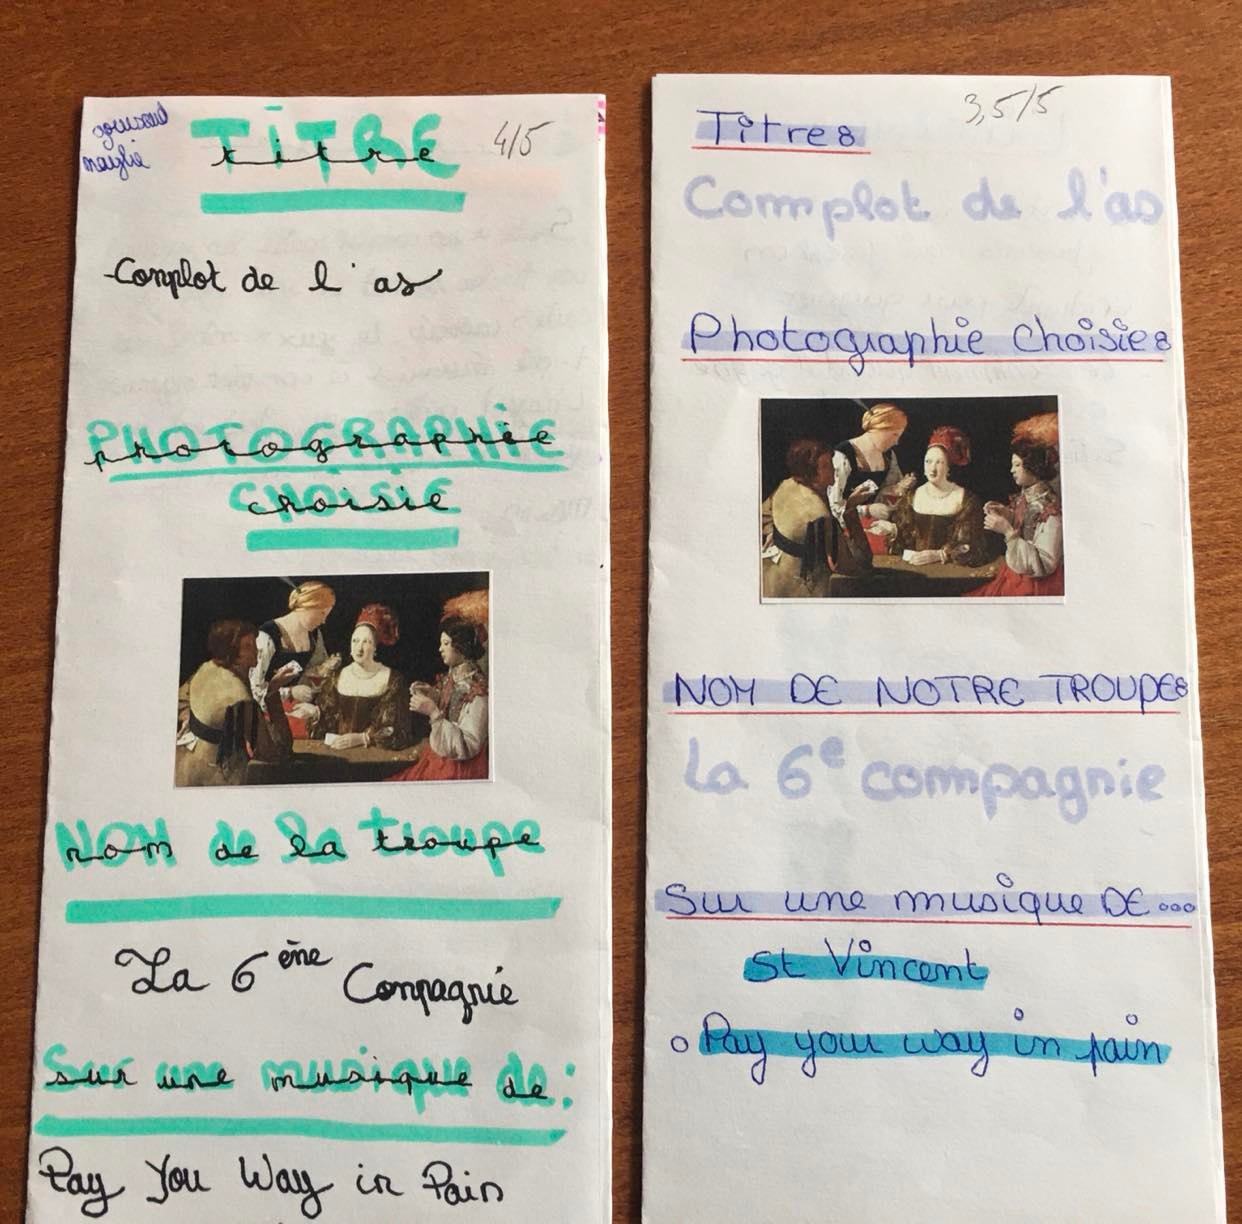 TITRE
titre
4/5
Complot de l'as
PHOTOGRAPHIE
photographie
CHOISIE
choisie
NOM de la troupe
nom de la troupe
La 6ème Compagnie
Sur une musique de :
sur une musique de
Pay You Way in Pain
3,5/5
Titre :
Complot de l'as
Photographie Choisie :
NOM DE NOTRE TROUPE :
La 6e compagnie
Sur une musique DE...
St Vincent
Pay your way in pain